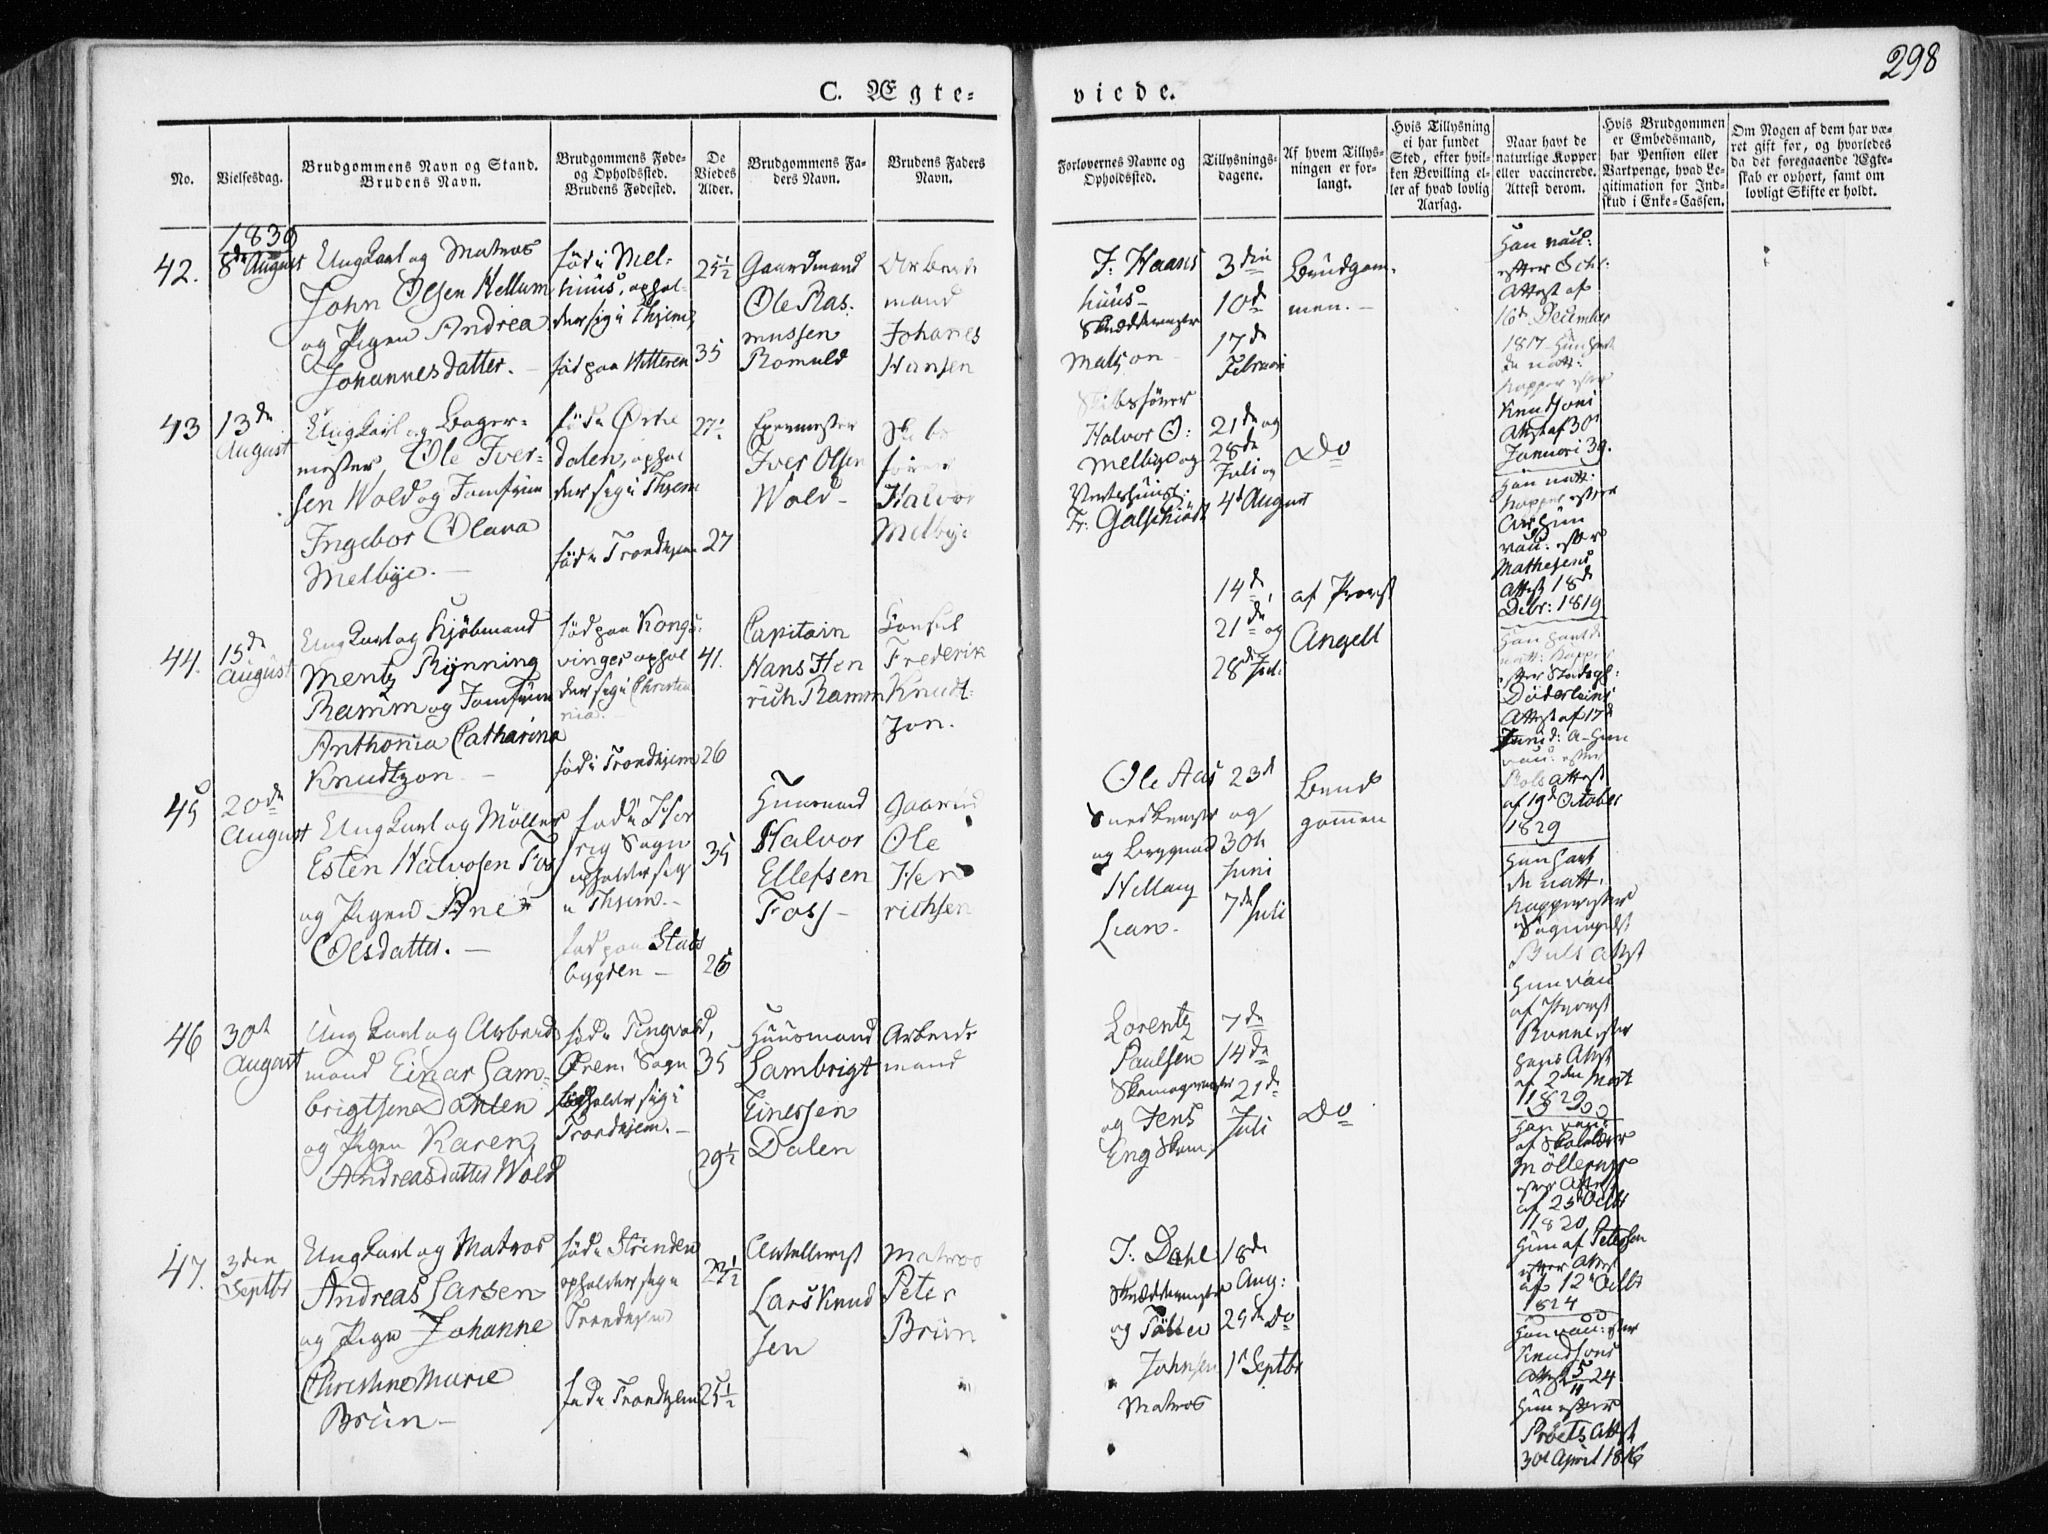 298
C. Ægte-
viede.
No.
Vielsesdag.
Brudgommens Navn og Stand.
Brudens Navn.
Brudgommens Føde-
og Opholdssted.
Brudens Fødested.
De
Viedes
Alder.
Brudgommens Fa-
ders Navn.
Brudens Faders
Navn.
Forlovernes Navne og
Opholdssted.
Tillysnings-
dagene.
Af hvem Tillys-
ningen er for-
langt.
Hvis Tillysning
ei har fundet
Sted, efter hvil-
ken Bevilling el-
ler af hvad lovlig
Aarsag.
Naar havt de
naturlige Kopper
eller vaccinerede.
Attest derom.
Hvis Brudgommen
er Embedsmand,
har Pension eller
Vartpenge, hvad Le-
gitimation for Ind-
skud i Enke-Cassen.
Om Nogen af dem har væ-
ret gift før, og hvorledes
da det foregaaende Ægte-
skab er ophørt, samt om
lovligt Skifte er holdt.
1830
42.
8de August
Ungkarl og Matros
John Olsen Kellum
og Pigen Andrea
Johannesdatter.
fød i Mel-
huus, ophol-
der sig i Thjem,
fød paa Hitteren
25½
35
Gaardmand
Ole Ras-
mussen
Romuld
Arbeids
mand
Johanes
Hansen
J. Haans
huus
Skreddermester
Matson
3die
10de
17de
Februari
Brudgom-
men.
Han vac:
efter Schr:
Attest af
16de December
1817 Hun havt
de natt:
kopper efter
Knudsons
Attest af 30t
Januari 30.
43
13de
August
Ungkarl og Bager-
mester Ole Iver-
sen Wold og Jomfrue
Ingebor Olava
Melbye.
fød i Ørke
dalen, ophol
der sig i Thjem
fød i Trondhjem
27½
27
Iver Olsen
Wold
Skibs
fører
Halvor
Melbye
Skibsfører
Halvor O:
Melbye og
Fr: Galschiødt
21de og
28de
Juli og
4d August
Do
Han natt:
kopper efter
Hun
vac: efter
Mathesens
Attest 18de
Debr: 1819
44.
15de
August
Ungkarl og Kjøbmand
Mentz Rynning
Ramm og Jomfrue
Anthonia Catharina
Knudtzon
fød paa Kongs-
vinger ophol
der sig i Christia
nia.
fød i Trondhjem
41.
26
Capitain
Hans Hen
rich Ramm
Consul
Frederik
Knudt-
zon.
14de,
21de og
28de Juli
af Provst
Angell
Han havt de
natt: kopper
Attest af 17d
vac: efter
Attest
af 19d October
1829
45
20de
August
Ungkarl og Møller
Esten Halvosen Fos
og Pigen Ane
Olsdatter.
rig Sogn
opholder sig
i Thjem.
fød paa Stads
bygden
35
26
Huusmand
Halvor
Ellefsen
Foss
Ole
Hen
richsen
Ole Aas
Snedkermester
og
Hellang
Lian.
23d
og
30te
Juni
7de Juli
Brud
gommen
Han havt
de natt.
kopper efter
Attest
Hun vac
af Provst
efter
hans Attest
af 2den Mart
1829
46
30t
August
Ungkarl og Arbeids
mand Einar Lam-
brigtsen Dahlen
og Pigen Karen
Andreasdatter Wold
fød i Tingvold,
Øren Sogn
opholder sig i
Trondhjem.
35
29½
Huusmand
Lambrigt
Einersen
Dalen
Arbeids
mand
Lorentz
Paulsen
Skomagermester
og Jens
Eng Skom
7de
14de
21de
Juli
Do
Han vac:
af
Møllerup
efter Attest
af 25 Octbr
1820
Hun af Petersen
efter Attest
af 12t Octbr
1824
47.
3den
Septbr
Ungkarl og Matros
Andreas Larsen
og Pige Johanne
Christine Marie
Brün
fød i Strinden
opholder sig i
Trondhjem
fød i Trondhjem
23½
25½
Lars Knud
sen
Matros
Peter
Brün
J. Dahl
Skreddermester
og
Johnsen
Matros
18de
Aug:
25de Do
1t Septbr
Han vac: efter
Knudsons
Attest 5/11 24
Hun efter
Attest
30t April 1816